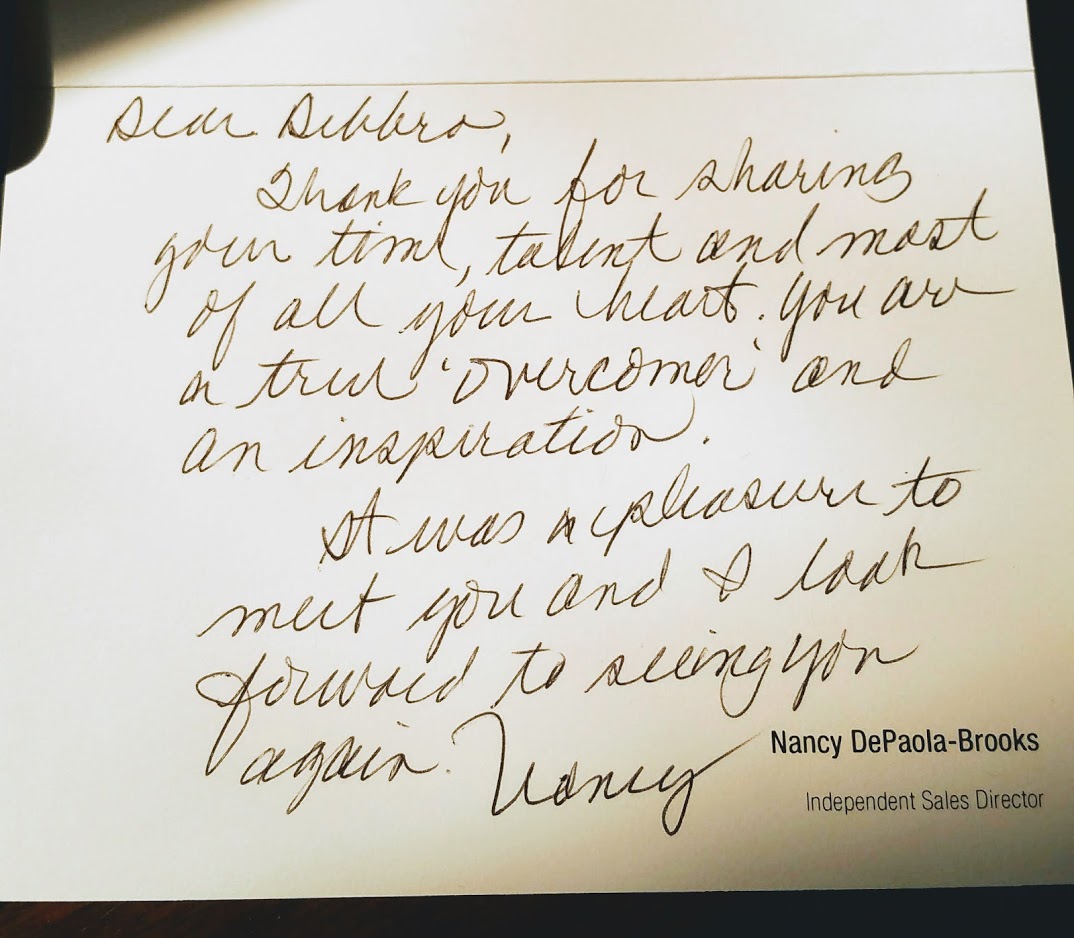 Dear Debbra,
Thank you for sharing
your time, talent and most
of all your heart. You are
a true 'overcomer' and
an inspiration.
It was a pleasure to
meet you and I look
forward to seeing you
again. Nancy
Nancy DePaola-Brooks
Independent Sales Director